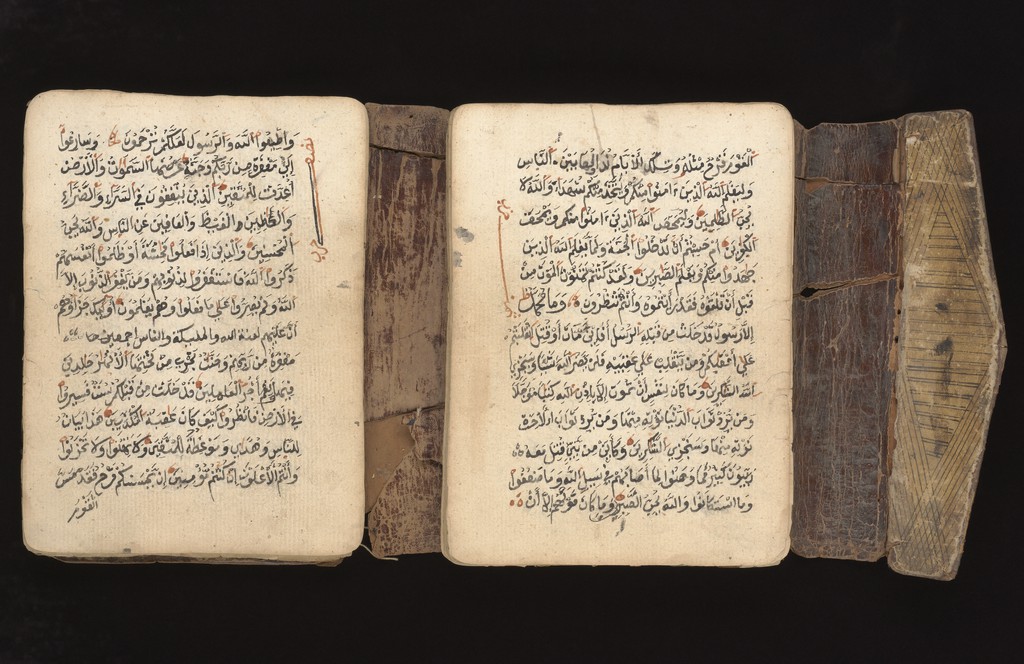 واطيعوا الله والرسول لعلكم ترحمون وسارعوا
إلى مغفرة من ربكم وجنة عرضها السموات والارض
أعدت للمتقين الذين ينفقون في السراء والضراء
والكظمين الغيظ والعافين عن الناس والله يحب
المحسنين والذين إذا فعلوا فحشة أو ظلموا أنفسهم
ذكروا الله فاستغفروا لذنوبهم ومن يغفر الذنوب إلا
الله ولم يصروا على ما فعلوا وهم يعلمون أوليك جزاؤهم
أن عليهم لعنة الله والمليكة والناس أجمعين
مغفرة من ربهم وجنت تجري من تحتها الانهر خلدين
فيها ونعم أجر العملين قد خلت من قبلكم سنن فسيروا
في الارض فانظروا كيف كان عقبة المكذبين هذا بيان
للناس وهدى وموعظة للمتقين ولا تهنوا ولا تحزنوا
وأنتم الاعلون إن كنتم مومنين إن يمسسكم قرح فقد مس
القوم
نصف
حزب
القوم قرح مثله وتلك الايام نداولها بين الناس
وليعلم الله الذين ءامنوا منكم ويتخذ منكم شهداء والله لا
يحب الظلمين وليمحص الله الذين ءامنوا منكم ويمحق
الكفرين أم حسبتم أن تدخلوا الجنة ولما يعلم الله الذين
جهدوا منكم ويعلم الصبرين ولقد كنتم تمنون الموت من
قبل أن تلقوه فقد رأيتموه وأنتم تنظرون وما محمد
إلا رسول قد خلت من قبله الرسل أفإين مات أو قتل انقلبتم
على أعقبكم ومن ينقلب على عقبيه فلن يضر الله شيا وسيجزي
الله الشكرين وما كان لنفس أن تموت إلا بإذن الله كتبا موجلا
ومن يرد ثواب الدنيا نوته منها ومن يرد ثواب الاخرة
نوته منها وسنجزي الشكرين وكأين من نبي قتل معه
ربيون كثير فما وهنوا لما أصابهم في سبيل الله وما ضعفوا
وما استكانوا والله يحب الصبرين وما كان قولهم إلا أن